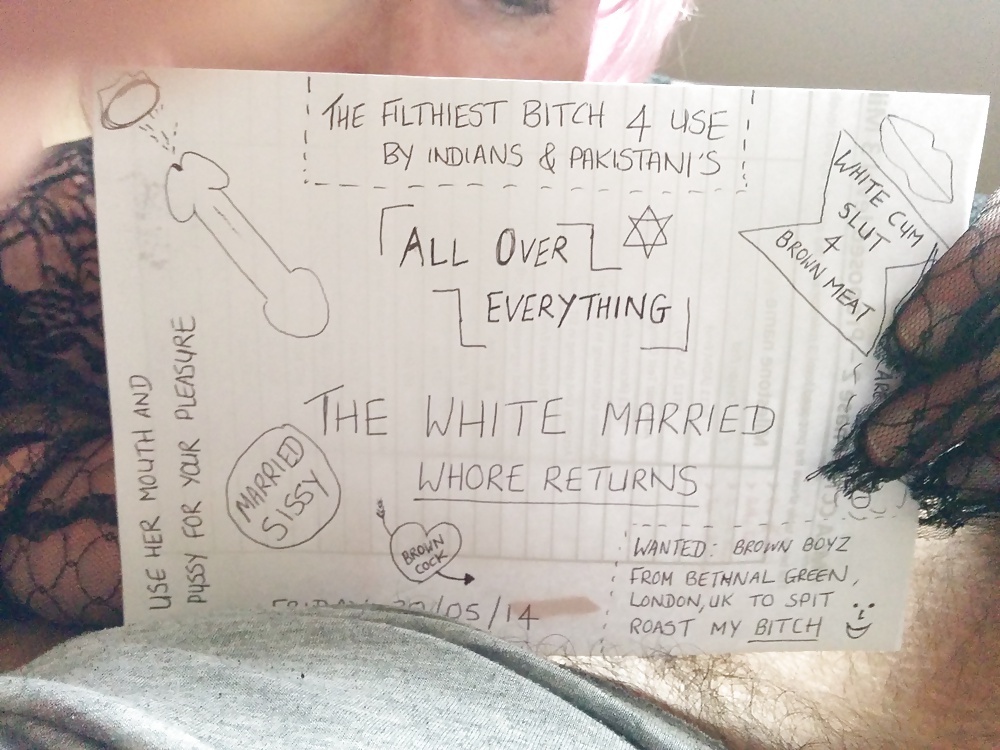 THE FILTHIEST BITCH 4 USE
BY INDIANS & PAKISTANI'S
WHITE CUM
SLUT
4
BROWN MEAT
ALL OVER
EVERYTHING
THE WHITE MARRIED
WHORE RETURNS
USE HER MOUTH AND
PUSSY FOR YOUR PLEASURE
MARRIED
SISSY
BROWN
COCK
/05/14
WANTED: BROWN BOYZ
FROM BETHNAL GREEN,
LONDON, UK TO SPIT
ROAST MY BITCH